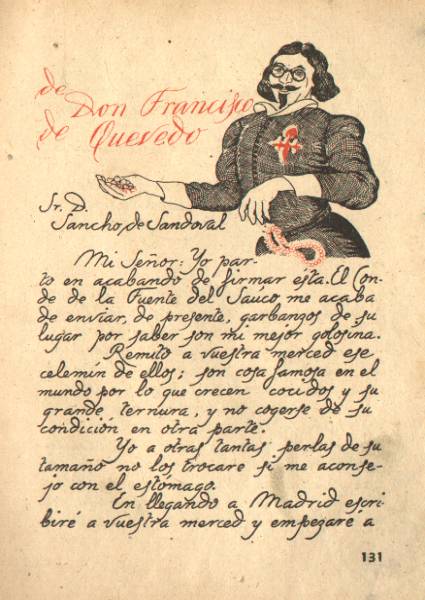 de
Don Francisco
de Quevedo
Sr. D.
Sancho, de Sandoval
Mi Señor: Yo par-
to en acabando de firmar ésta. El Con-
de de la Fuente del Saúco, me acaba
de enviar, de presente, garbanzos de su
lugar por saber son mi mejor golosina.
Remito a vuestra merced ese
celemín de ellos; son cosa famosa en el
mundo por lo que crecen cocidos y su
grande ternura, y no cogerse de su
condición en otra parte.
Yo a otras tantas perlas de su
tamaño no los trocare si me aconse-
jo con el estómago.
En llegando a Madrid escri-
biré a vuestra merced y empezaré a
131